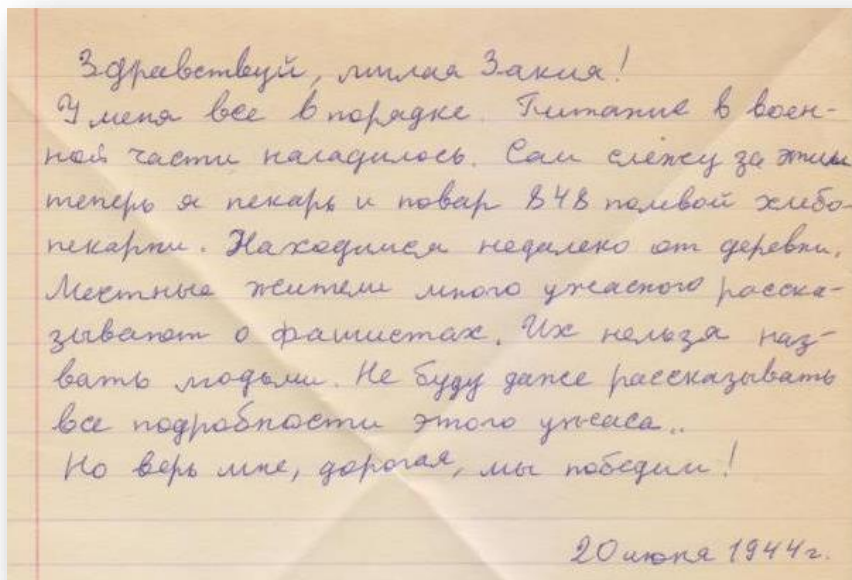 Здравствуй, милая Закия!
У меня все в порядке. Питание в воен-
ной части наладилось. Сам слежу за этим
теперь я пекарь и повар 848 полевой хлебо-
пекарни. Находимся недалеко от деревни.
Местные жители много ужасного расска-
зывают о фашистах. Их нельзя наз-
вать людьми. Не буду даже рассказывать
все подробности этого ужаса..
Но верь мне, дорогая, мы победим!
20 июня 1944г.